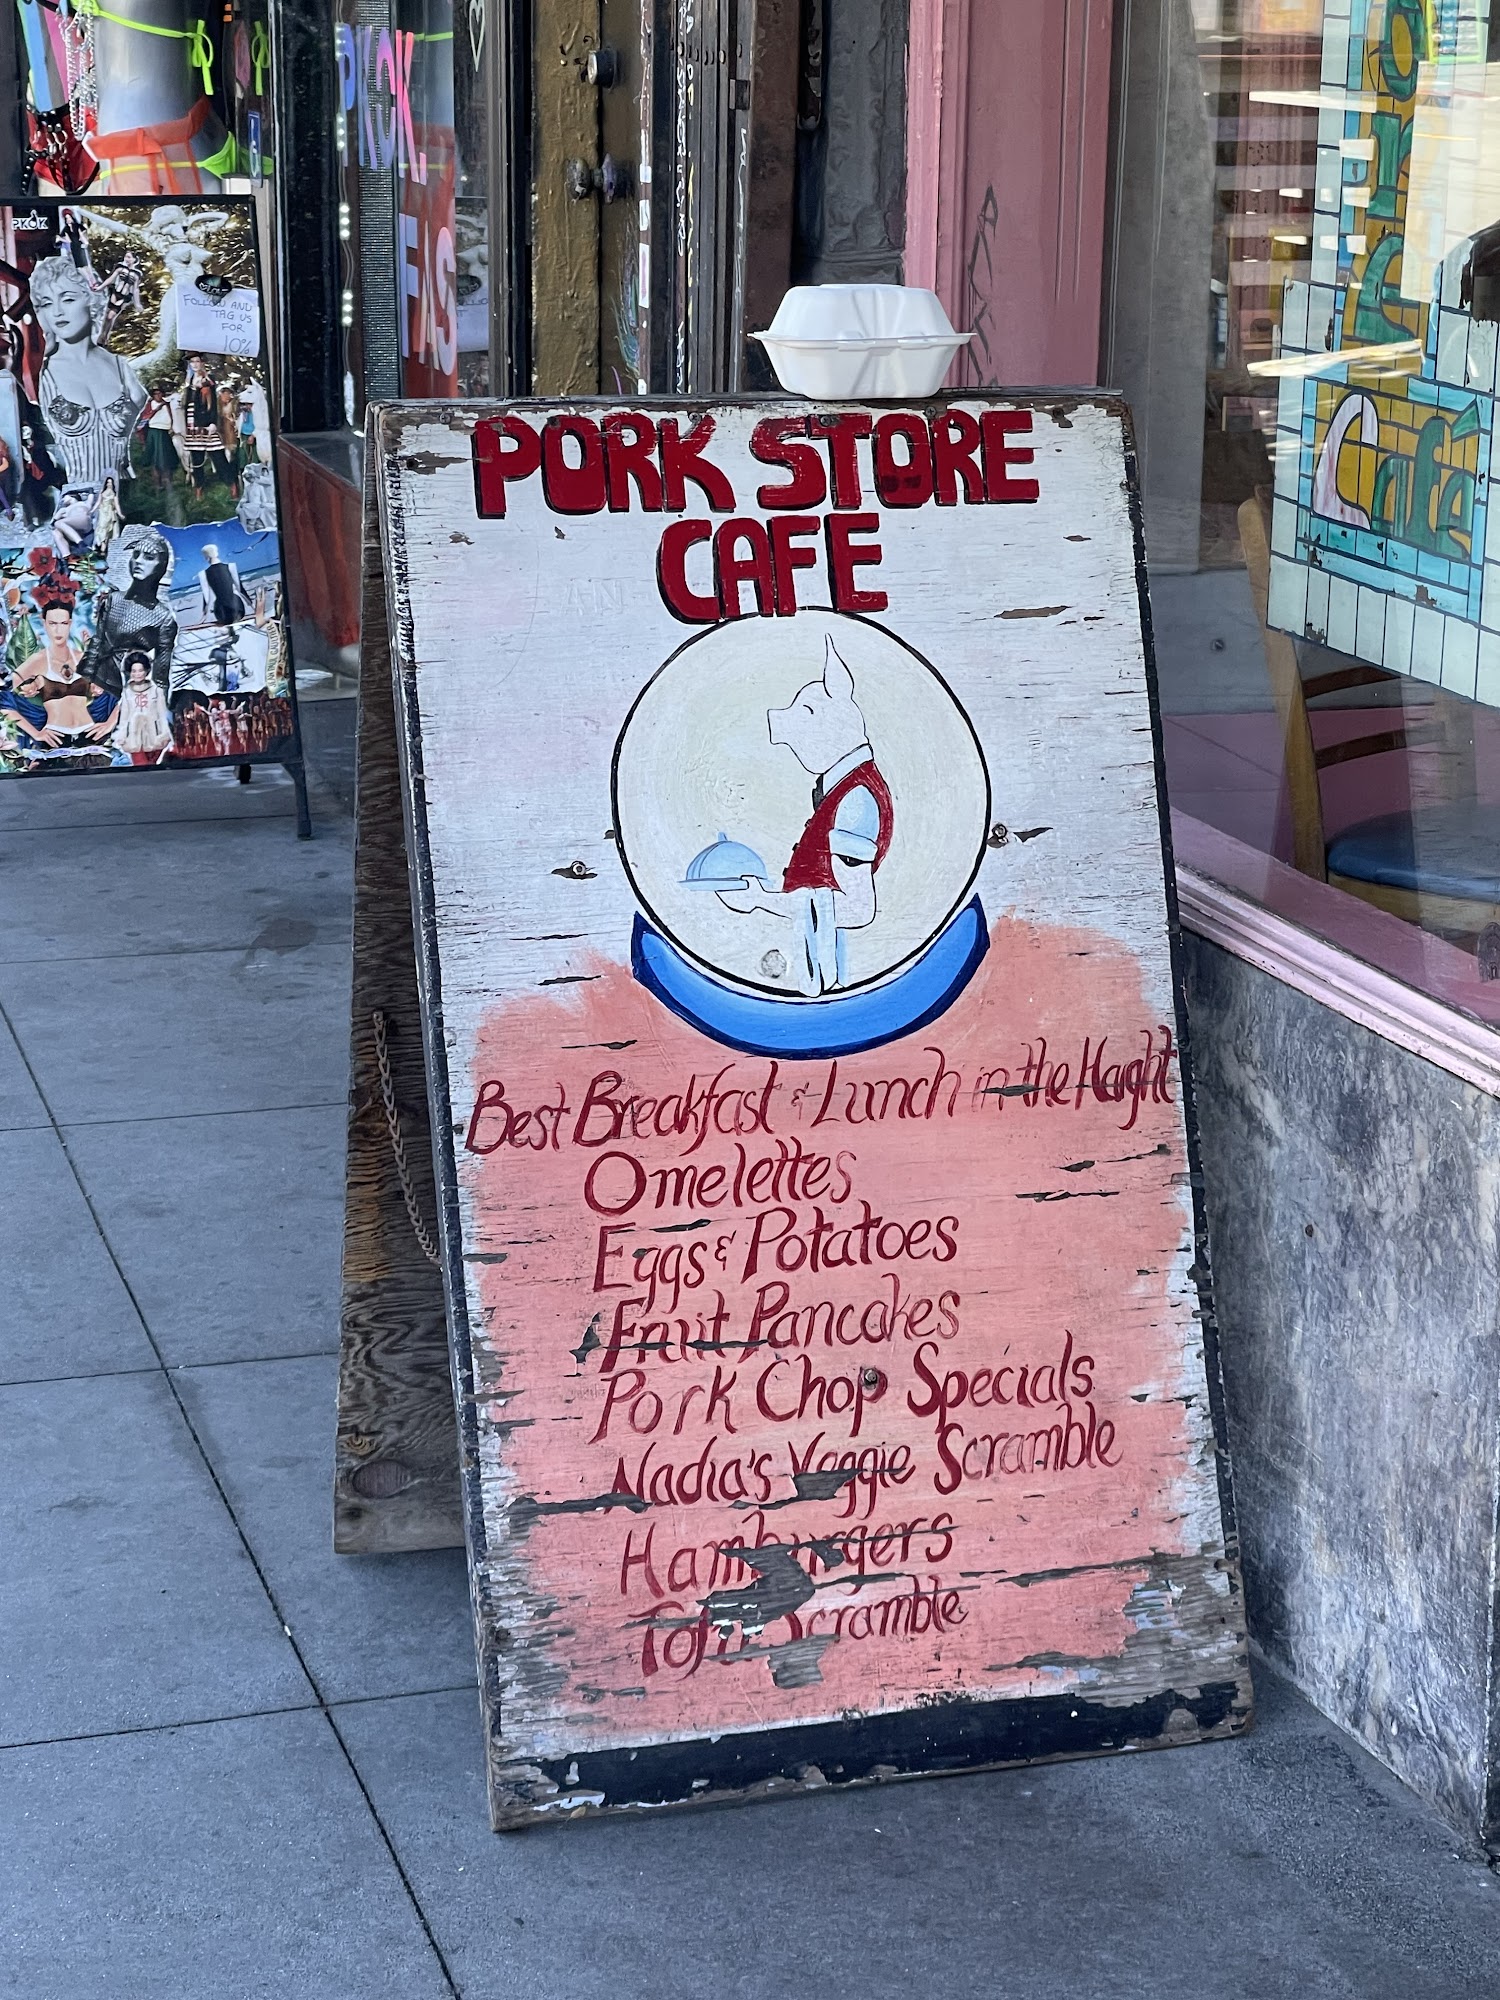 PORK STORE
CAFE
Best Breakfast & Lunch in the Haight
Omelettes
Eggs & Potatoes
Fruit Pancakes
Pork Chop Specials
Nadia's Veggie Scramble
Hamburgers
Tofu Scramble
PKOK
FOLLOW AND
TAG US
FOR
10%
PKOK
Café